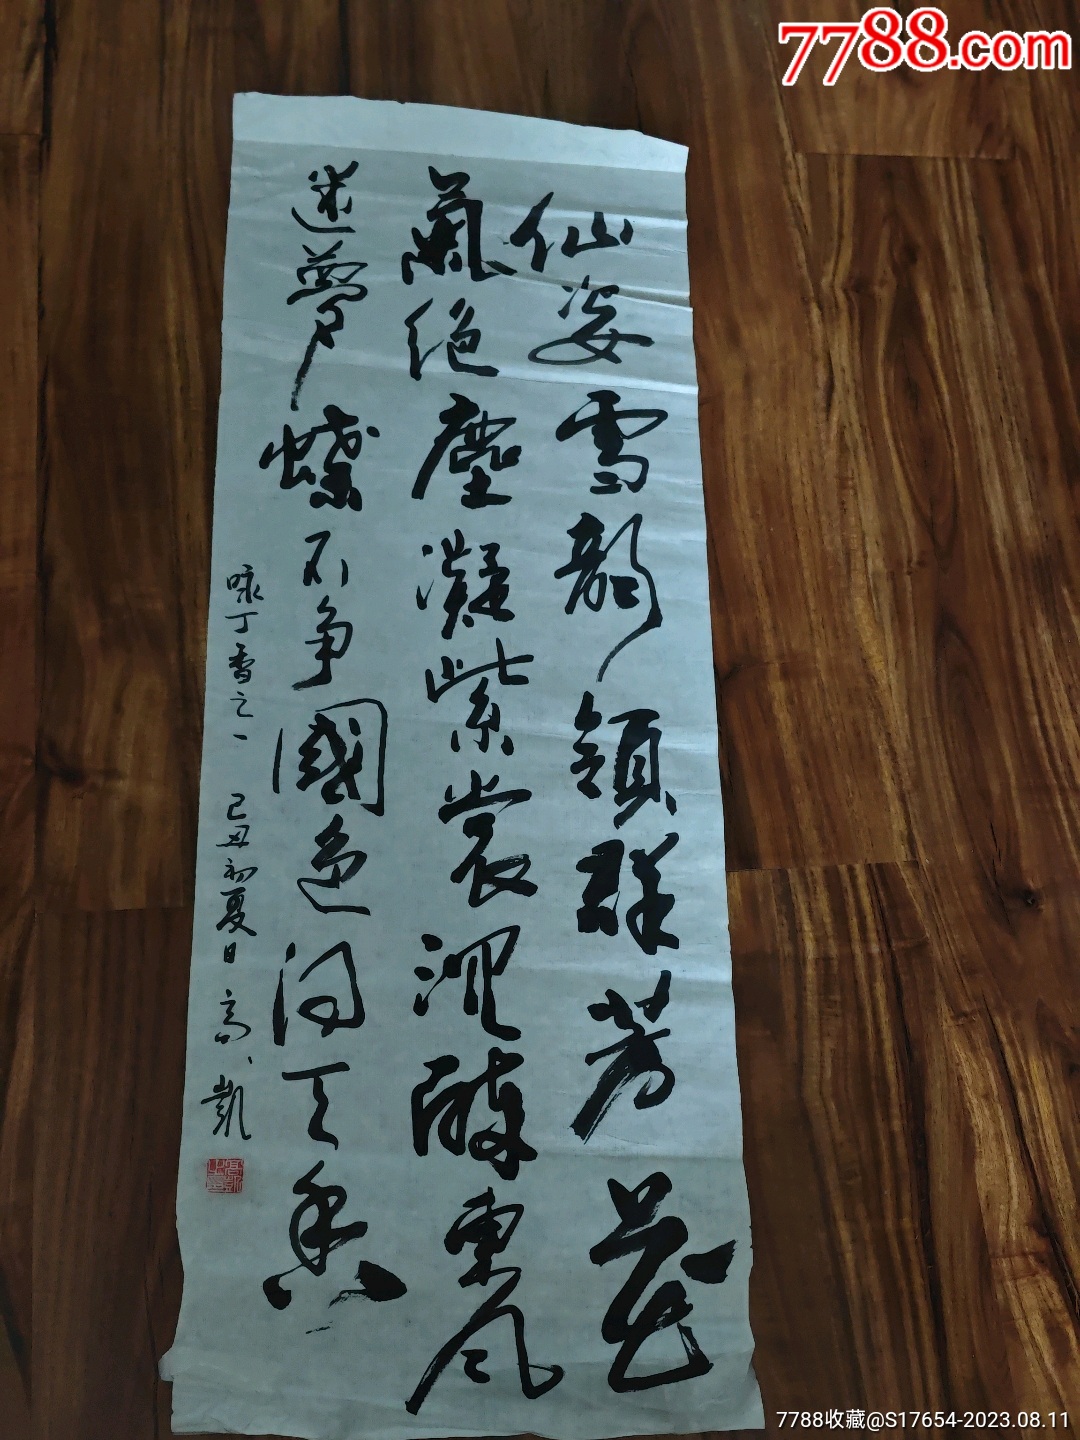 7788.com
仙姿雪韻領群芳花
氣絶塵凝紫裳沉醉東風
迷夢蝶不争國色问天香
咏丁香之一 己丑初夏日 高凱
7788收藏@S17654-2023.08.11